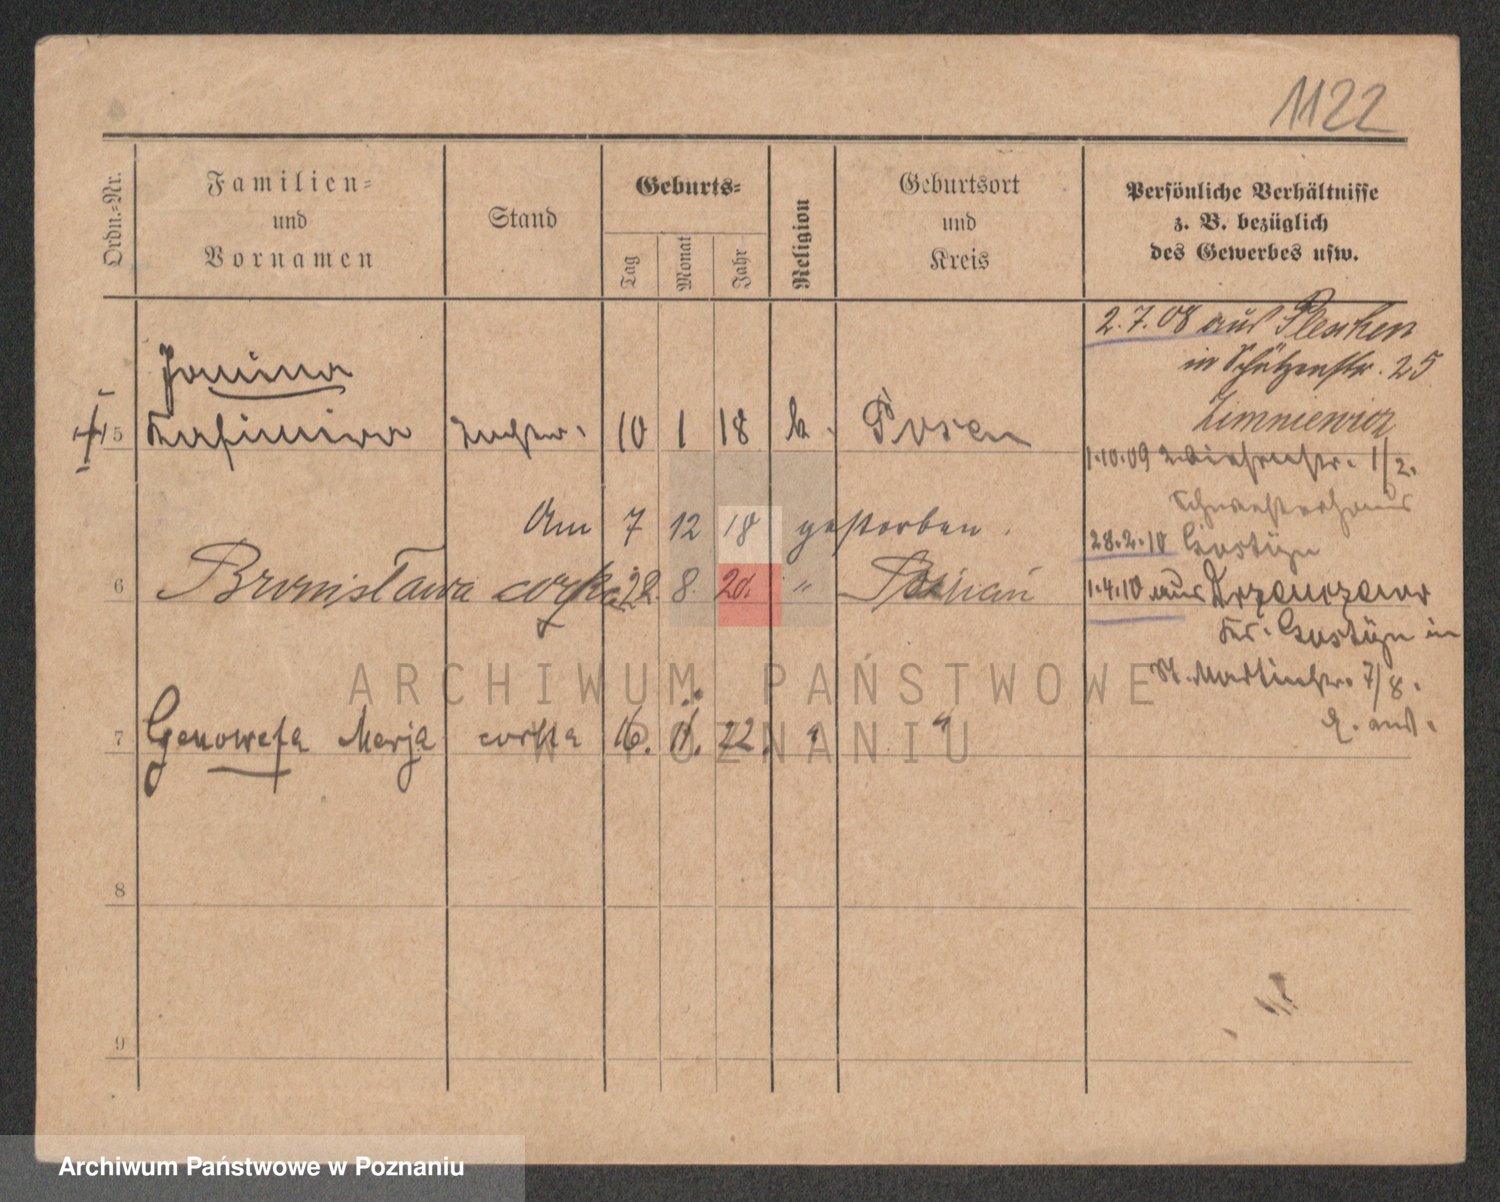 1122
Ordn.=Nr.
Familien=
und
Vornamen
Stand
Geburts=
Tag
Monat
Jahr
Religion
Geburtsort
und
Kreis
Persönliche Verhältnisse
z. B. bezüglich
des Gewerbes usw.
2.7.08 aus Pleschen
in Schützenstr. 25
Zimniewicz
Janina
5 Kasimira Tochter 10 1 18 k. Posen
1.10.09 Wiesenstr. 1/2.
Schwesternhaus
Am 7 12 18 gestorben.
28.2.10 Gostyn
6 Bronisława córka 22 8. 20. " Poznań
1.4.10 aus
Kr. Gostyn in
St. Martinstr. 7/8.
7 Genowefa Marja córka 16. 11. 22. " "
8
9
ARCHIWUM PAŃSTWOWE
W POZNANIU
Archiwum Państwowe w Poznaniu